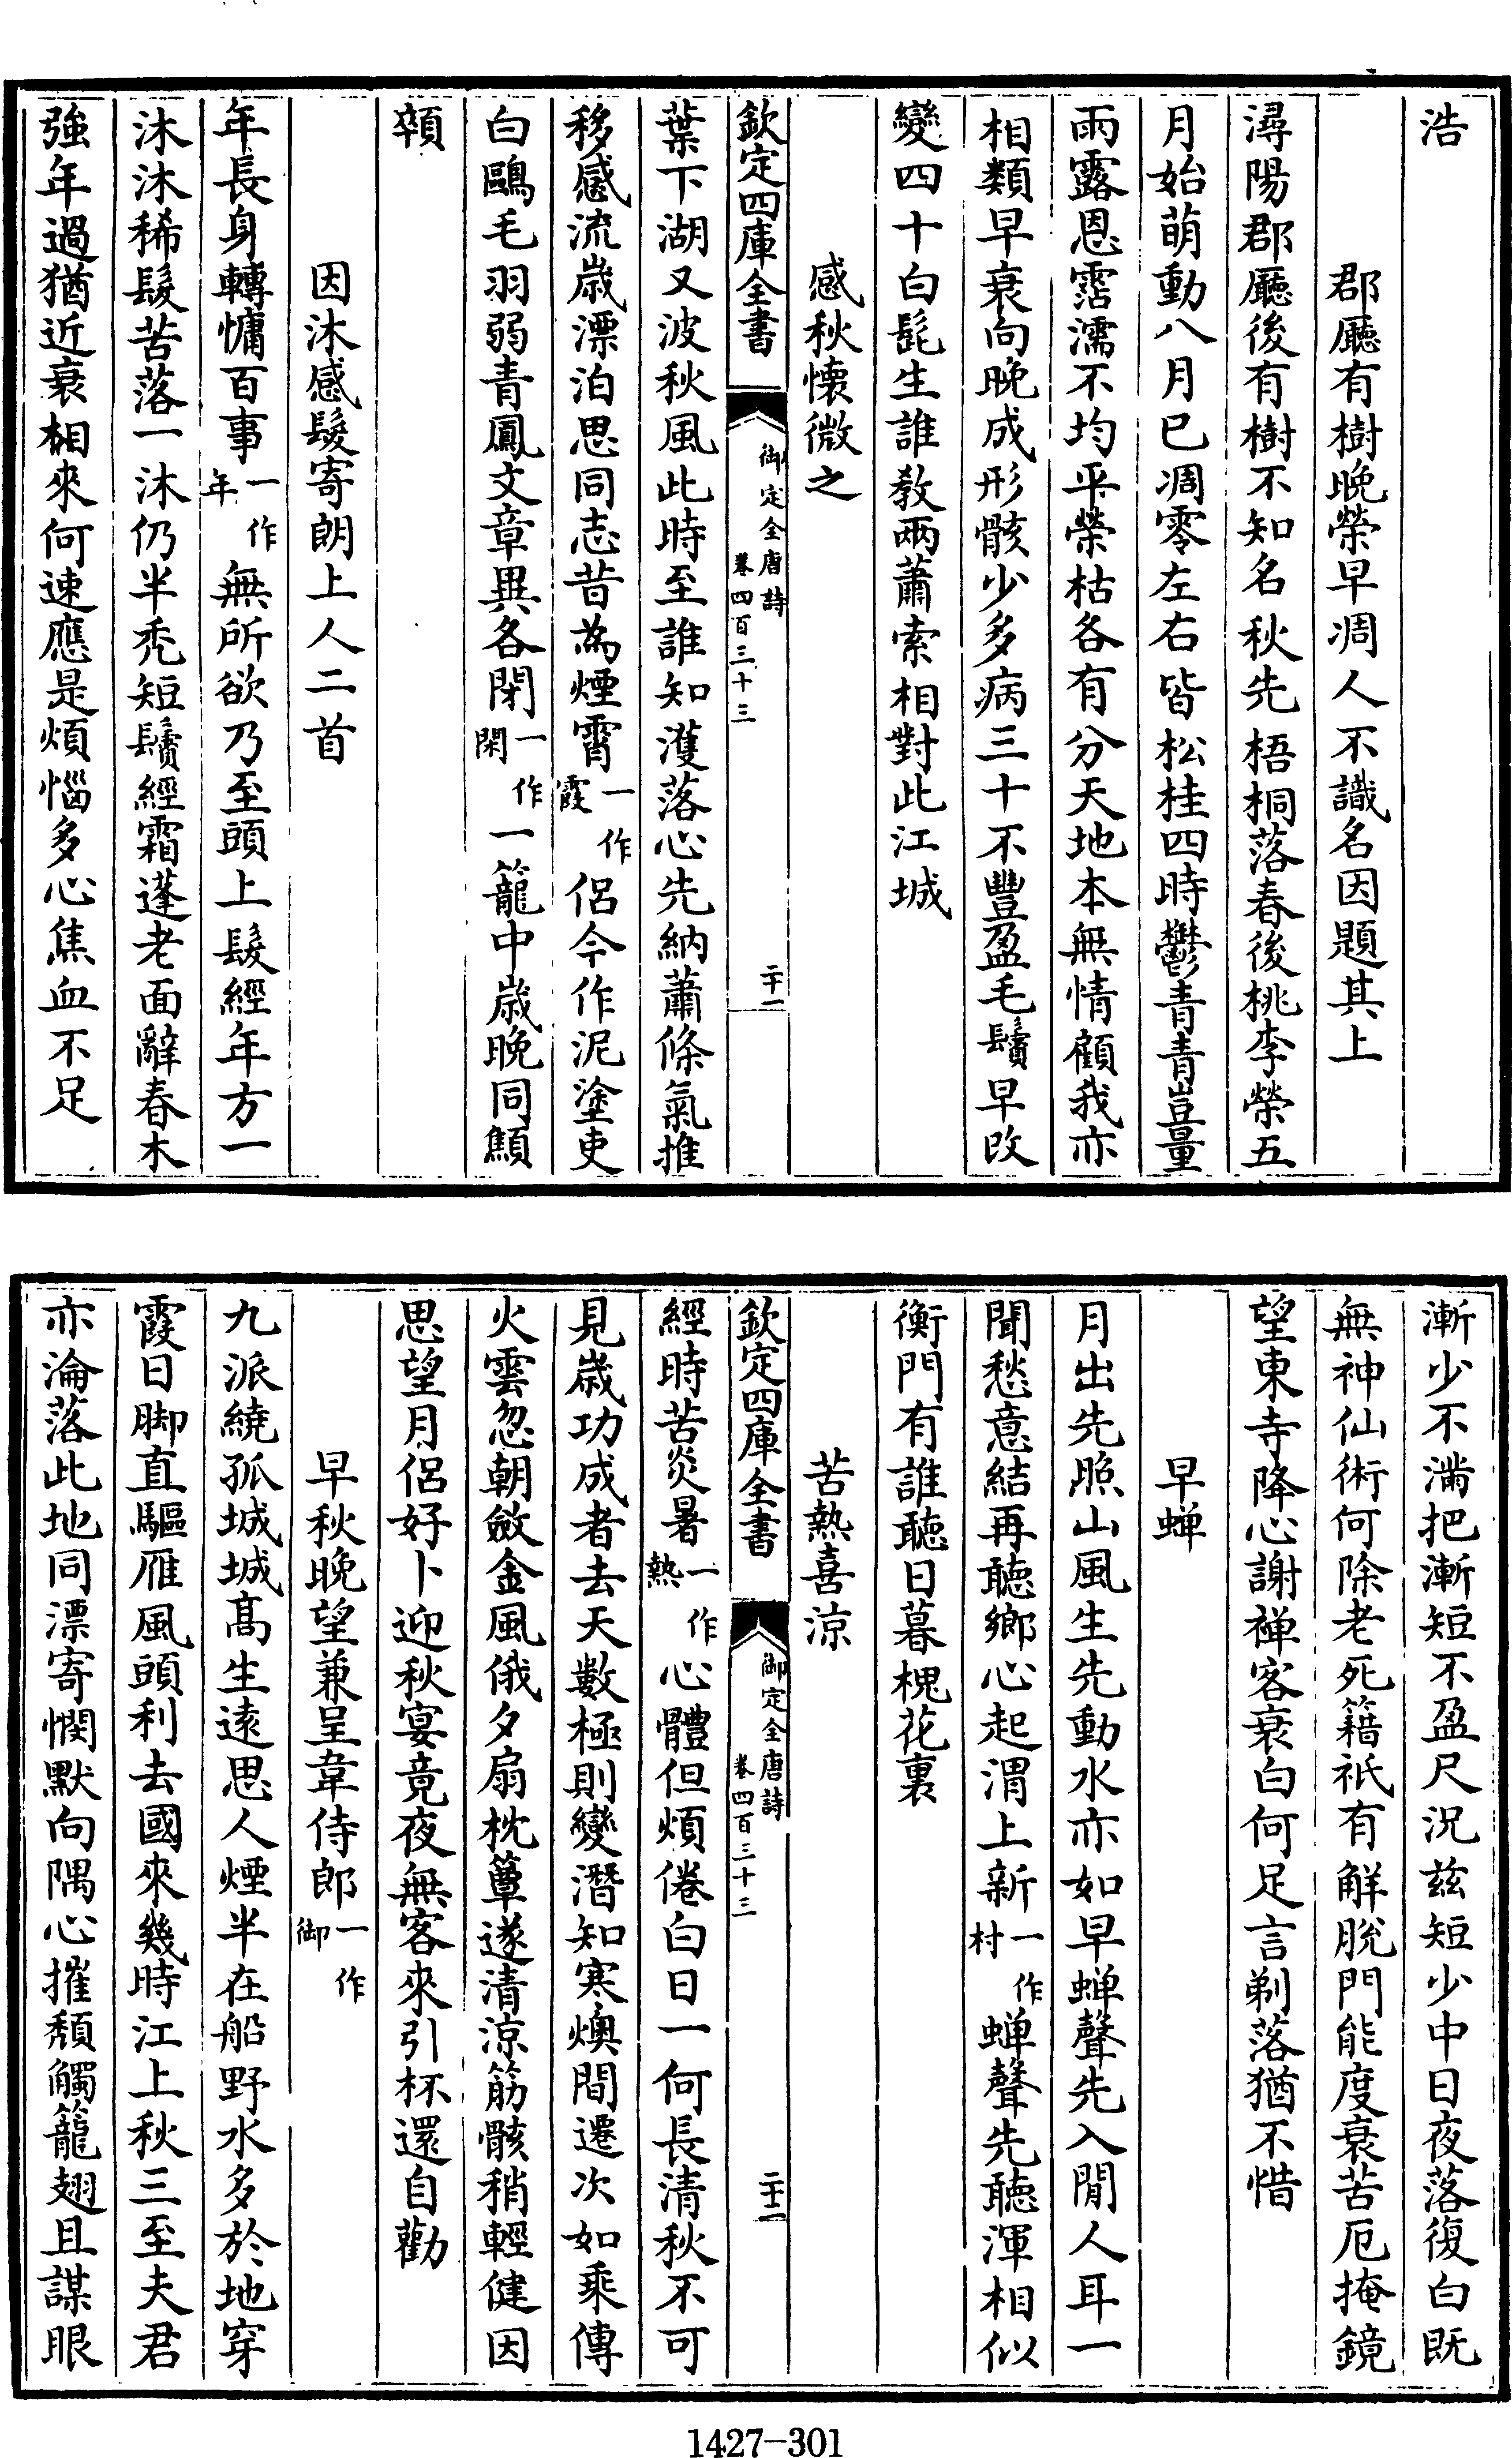 浩
郡廳有樹晚榮早凋人不識名因題其上
潯陽郡廳後有樹不知名秋先梧桐落春後桃李榮五
月始萌動八月已凋零左右皆松桂四時鬱青青豈量
雨露恩霑濡不均平榮枯各有分天地本無情顧我亦
相類早衰向晚成形骸少多病三十不豐盈毛鬢早改
變四十白髭生誰教兩蕭索相對此江城
感秋懷微之
欽定四庫全書
御定全唐詩
卷四百三十三
二十一
葉下湖又波秋風此時至誰知濩落心先納蕭條氣推
移感流歲漂泊思同志昔為煙霄一作霞侶今作泥塗吏
白鷗毛羽弱青鳳文章異各閉一作閑一籠中歲晚同顦
顇
因沐感髮寄朗上人二首
年長身轉慵百事一作年無所欲乃至頭上髮經年方一
沐沐稀髮苦落一沐仍半禿短鬢經霜蓬老面辭春木
強年過猶近衰相來何速應是煩惱多心焦血不足
漸少不滿把漸短不盈尺況兹短少中日夜落復白既
無神仙術何除老死籍祇有解脫門能度衰苦厄掩鏡
望東寺降心謝禅客衰白何足言剃落猶不惜
早蝉
月出先照山風生先動水亦如早蝉聲先入閒人耳一
聞愁意結再聽鄉心起渭上新一作村蝉聲先聽渾相似
衡門有誰聽日暮槐花裏
苦熱喜涼
欽定四庫全書
御定全唐詩
卷四百三十三
二十二
經時苦炎暑一作熱心體但煩倦白日一何長清秋不可
見歲功成者去天數極則變潛知寒燠間遷次如乘傳
火雲忽朝斂金風俄夕扇枕簟遂清涼筋骸稍輕健因
思望月侶好卜迎秋宴竟夜無客來引杯還自勸
早秋晚望兼呈韋侍郎一作御
九派繞孤城城髙生遠思人煙半在船野水多於地穿
霞日脚直驅雁風頭利去國來幾時江上秋三至夫君
亦淪落此地同漂寄憫默向隅心摧頽觸籠翅且謀眼
1427-301